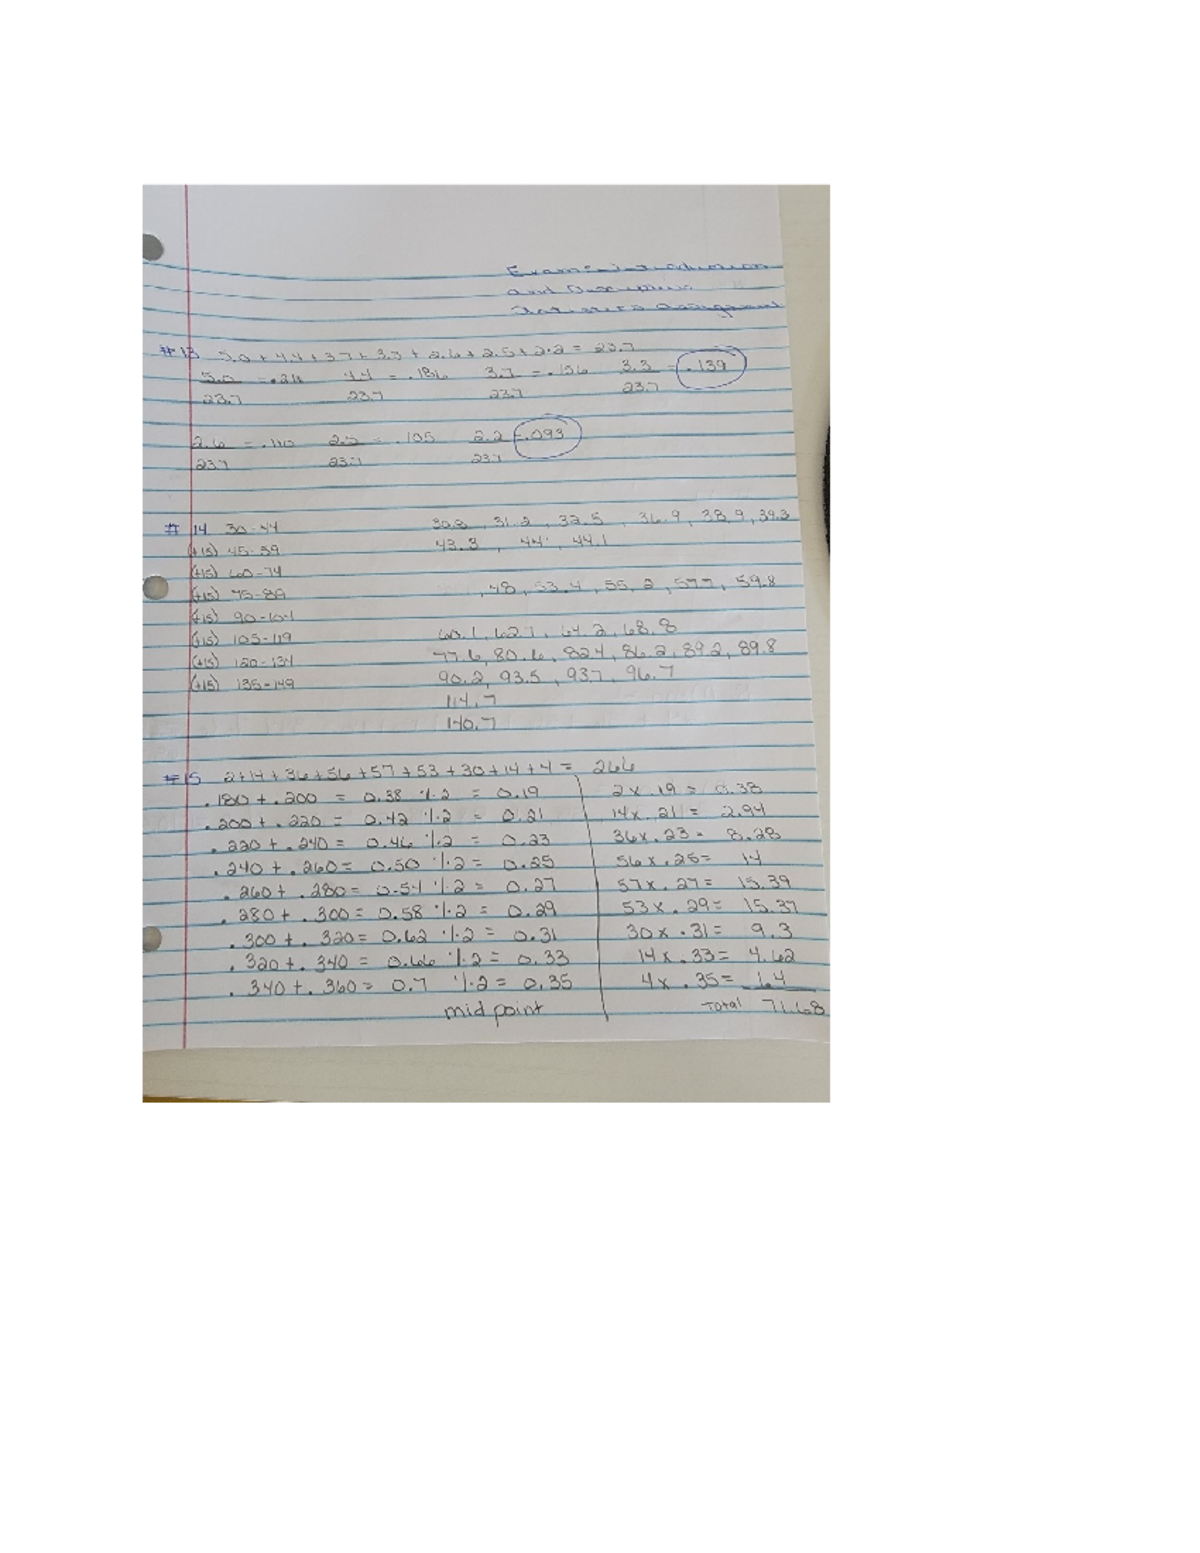 and
#13 5.0 + 4.4 + 3.7 + 3.3 + 2.6 + 2.5 + 2.2 = 23.7
5.0 = .211 4.4 = .186 3.7 = .156 3.3 = .139
23.7 23.7 23.7 23.7
2.6 = .110 2.5 = .105 2.2 = .093
23.7 23.7 23.7
# 14 30-44 30.8, 31.2, 32.5, 36.9, 38.9, 39.3
(+15) 45-59 43.3, 44, 44.1
(+15) 60-74
(+15) 75-89 , 48, 53.4, 55.2, 57.7, 59.8
(+15) 90-104
(+15) 105-119 60.1, 62.7, 64.2, 68.8
(+15) 120-134 77.6, 80.6, 82.4, 86.2, 89.2, 89.8
(+15) 135-149 90.2, 93.5, 93.7, 96.7
114.7
140.7
#15 2+14+36+56+57+53+30+14+4 = 266
.180 + .200 = 0.38 ·/· 2 = 0.19 2 x .19 = 0.38
.200 + .220 = 0.42 ·/· 2 = 0.21 14 x .21 = 2.94
.220 + .240 = 0.46 ·/· 2 = 0.23 36 x .23 = 8.28
.240 + .260 = 0.50 ·/· 2 = 0.25 56 x .25 = 14
.260 + .280 = 0.54 ·/· 2 = 0.27 57 x .27 = 15.39
.280 + .300 = 0.58 ·/· 2 = 0.29 53 x .29 = 15.37
.300 + .320 = 0.62 ·/· 2 = 0.31 30 x .31 = 9.3
.320 + .340 = 0.66 ·/· 2 = 0.33 14 x .33 = 4.62
.340 + .360 = 0.7 ·/· 2 = 0.35 4 x .35 = 1.4
midpoint Total 71.68